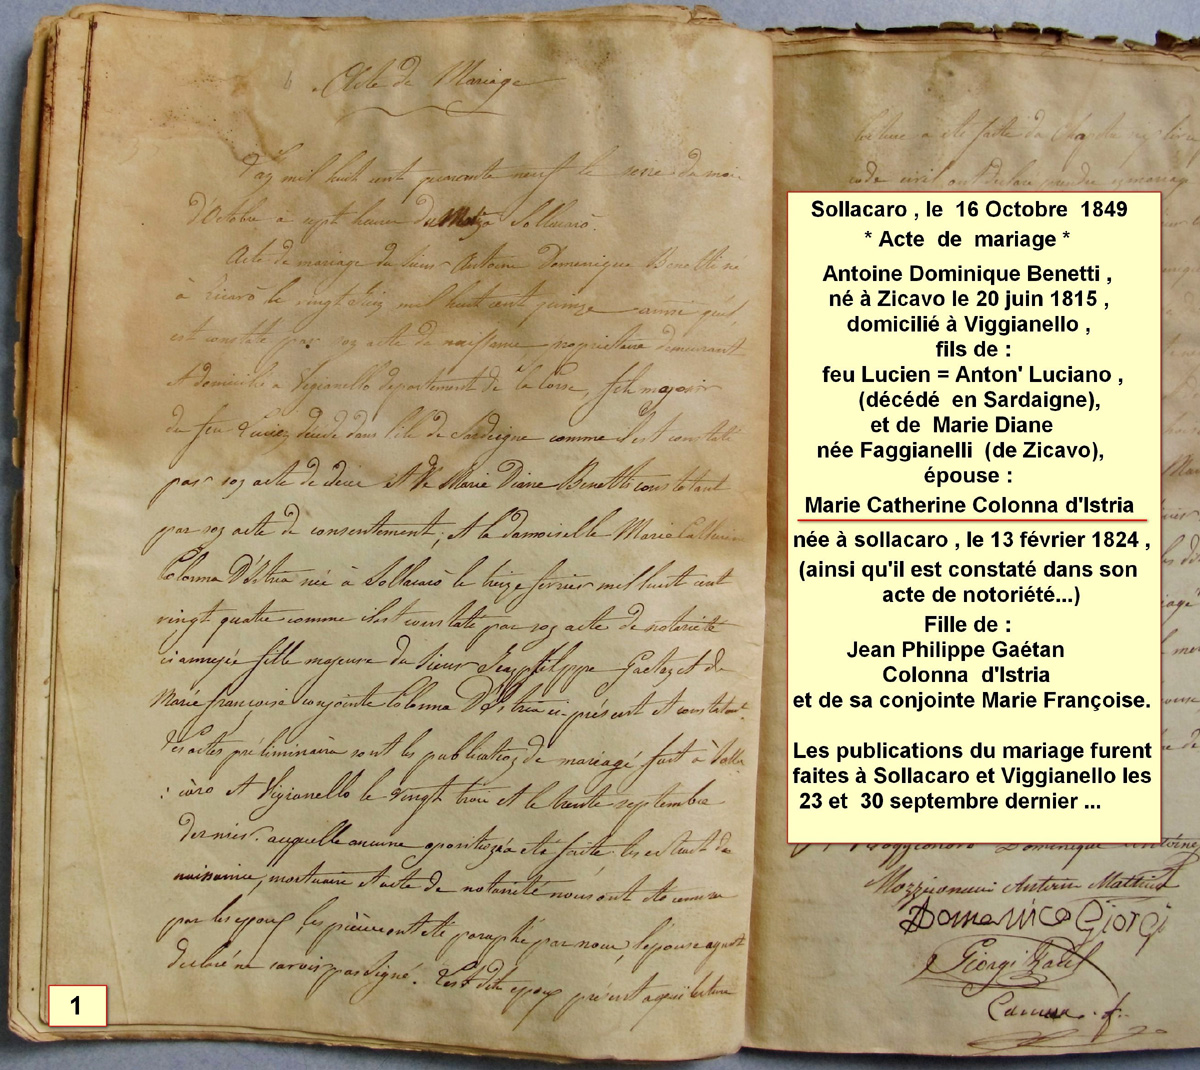 Acte de Mariage
L'an mil huit cent quarante neuf le seize du mois
d'Octobre a sept heures du Matin a Sollacarò.
Acte de mariage du sieur Antoine Domenique Benetti né
à Zicavò le vingt Juin mil huit cent quinze ainsi qu'il
est constaté par son acte de naissance propriétaire demeurant
et domicilié a Vigianello departement de la Corse, fils majeur
de feu Lucien décédé dans l'ile de Sardeigne comme il est constaté
par son acte de décè et de Marie Diane Benetti constatant
par son acte de consentement; et la damoiselle Marie Catherine
Colonna D'Istria née à Sollacarò le treize fevrier mil huit cent
vingt quatre comme il est constaté par son acte de notorieté
ci annexée fille majeure du sieur Jean Philippe Gaetan et de
Marie françoise conjointe Colonna D'Istria ci-présent et constatant.
Les actes préliminaire sont les publication de mariage fait à Solla
: carò et Vigianello le vingt trois et le trente septembre
dernier. auquelle aucune opposition a été faite. les extrait de
naissance, mortuaire et acte de notorieté nous ont été remise
par les epoux, les pièces ont été paraphé par nous, l'épouse ayant
declaré ne savoir pas signé. Les dits epoux présent a qui lecture
lecture a été faite du Chapitre
code civil ont déclaré prendre en mariage
Sollacaro , le 16 Octobre 1849
* Acte de mariage *
Antoine Dominique Benetti ,
né à Zicavo le 20 juin 1815 ,
domicilié à Viggianello ,
fils de :
feu Lucien = Anton' Luciano ,
(décédé en Sardaigne),
et de Marie Diane
née Faggianelli (de Zicavo),
épouse :
Marie Catherine Colonna d'Istria
née à sollacaro , le 13 février 1824 ,
(ainsi qu'il est constaté dans son
acte de notoriété...)
Fille de :
Jean Philippe Gaétan
Colonna d'Istria
et de sa conjointe Marie Françoise.
Les publications du mariage furent
faites à Sollacaro et Viggianello les
23 et 30 septembre dernier ...
Dominique Antoine
Mozziconacci Antoine Mathieu
Domenico Giorgi
Giorgi
1